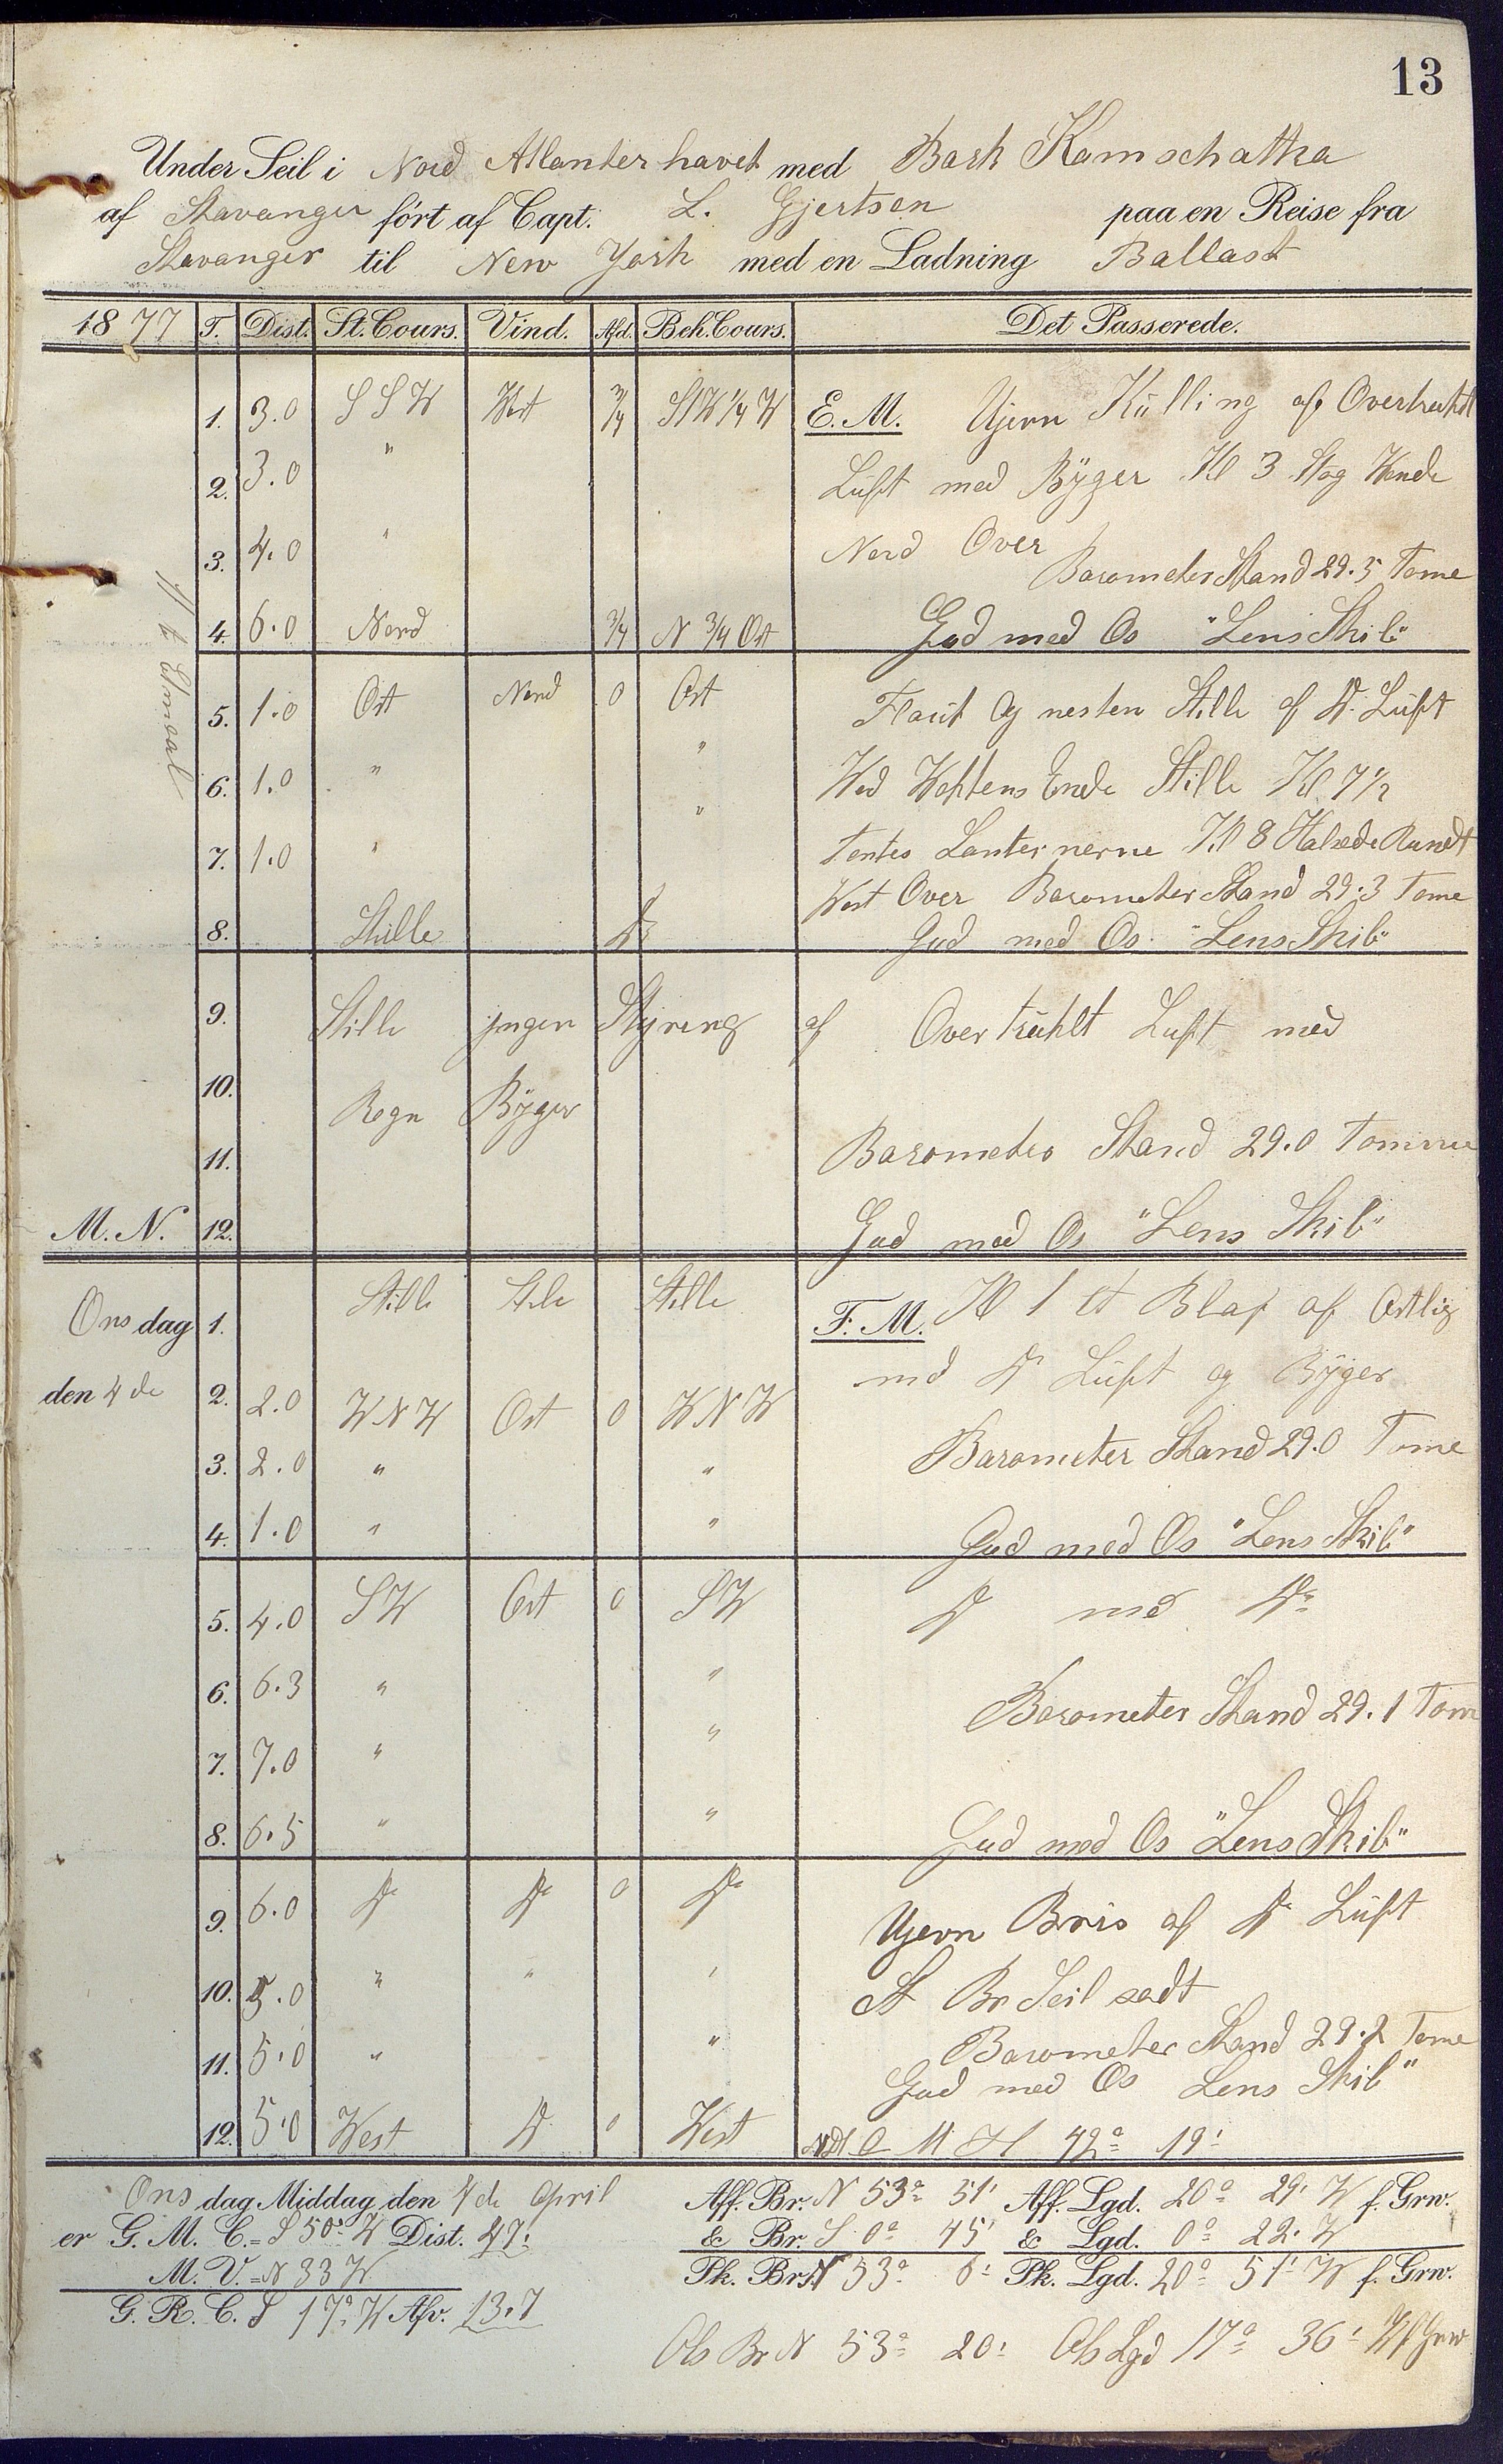 13
Under Seil i Nord Atlanter havet med Bark Kamschatka
af Stavanger ført af Capt. L. Gjertsen paa en Reise fra
Stavanger til New York med en Ladning Ballast
1877 T. Dist. St. Cours. Vind. Afd. Beh. Cours. Det Passerede.
1. 3.0 SSW West 3/4 StW 1/4 W E. M. Ujevn Kulling af Overtrukt
2. 3.0 " Luft med Byger Kl 3 Stag Vende
3. 4.0 " Nord Over
Barometer Stand 29.5 Tome
4. 6.0 Nord 3/4 N 3/4 Ost Gud med Os "Lens Skib"
5. 1.0 Ost Nord 0 Ost Flaut Og nesten Stille af Do Luft
6. 1.0 " " Ved Vaktens Ende Stille Kl 7 1/2
7. 1.0 " " Tentes Lanternerne Kl 8 Halsede Rundt
West Over Barometer Stand 29.3 Tome
8. Stille Do Gud med Os "Lens Skib"
9. Stille jngen Styring af Overtrukt Luft med
10. Regn Byger
11. Barometer Stand 29.0 Tomme
M. N. 12. Gud med Os "Lens Skib"
Onsdag 1. Stille Stile Stille F. M. Kl 1 et Blaf af Ostlig
den 4 de 2. 2.0 WNW Ost 0 WNW md Do Luft og Byger
3. 2.0 " " Barometer Stand 29.0 Tome
4. 1.0 " " Gud med Os "Lens Skib"
5. 4.0 SW Ost 0 SW Do md Do
6. 6.3 " " Barometer Stand 29.1 Tome
7. 7.0 " "
8. 6.5 " " Gud med Os "Lens Skib"
9. 6.0 Do Do 0 Do Ujevn Bris af Do Luft
10. 5.0 " " " St Br Seil sadt
11. 5.0 " " Barometer Stand 29.2 Tome
Gud med Os Lens Skib"
12. 5.0 West Do 0 West M H 42° 19'
Onsdag Middag den 4 de April Aff. Br. N 53° 51' Aff. Lgd. 20° 29' W f. Grw.
er G. M. C. = S 50° W Dist. 47' & Br. S 0° 45' & Lgd. 0° 22' W
M. V. = N 33 W Pk. Br. N 53° 6' Pk. Lgd. 20° 51' W f. Grw.
G. R. C. S 17° W Afv. 13.7
Obs Br N 53° 20' Obs Lgd 17° 36' W f Grw